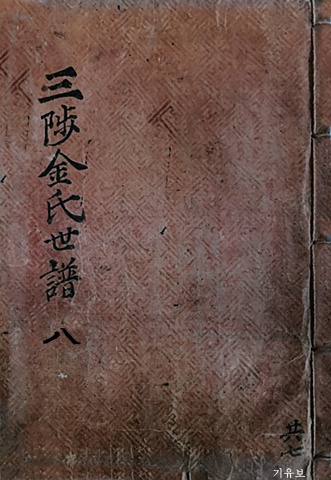 三陟金氏世譜 八
共七
기유보